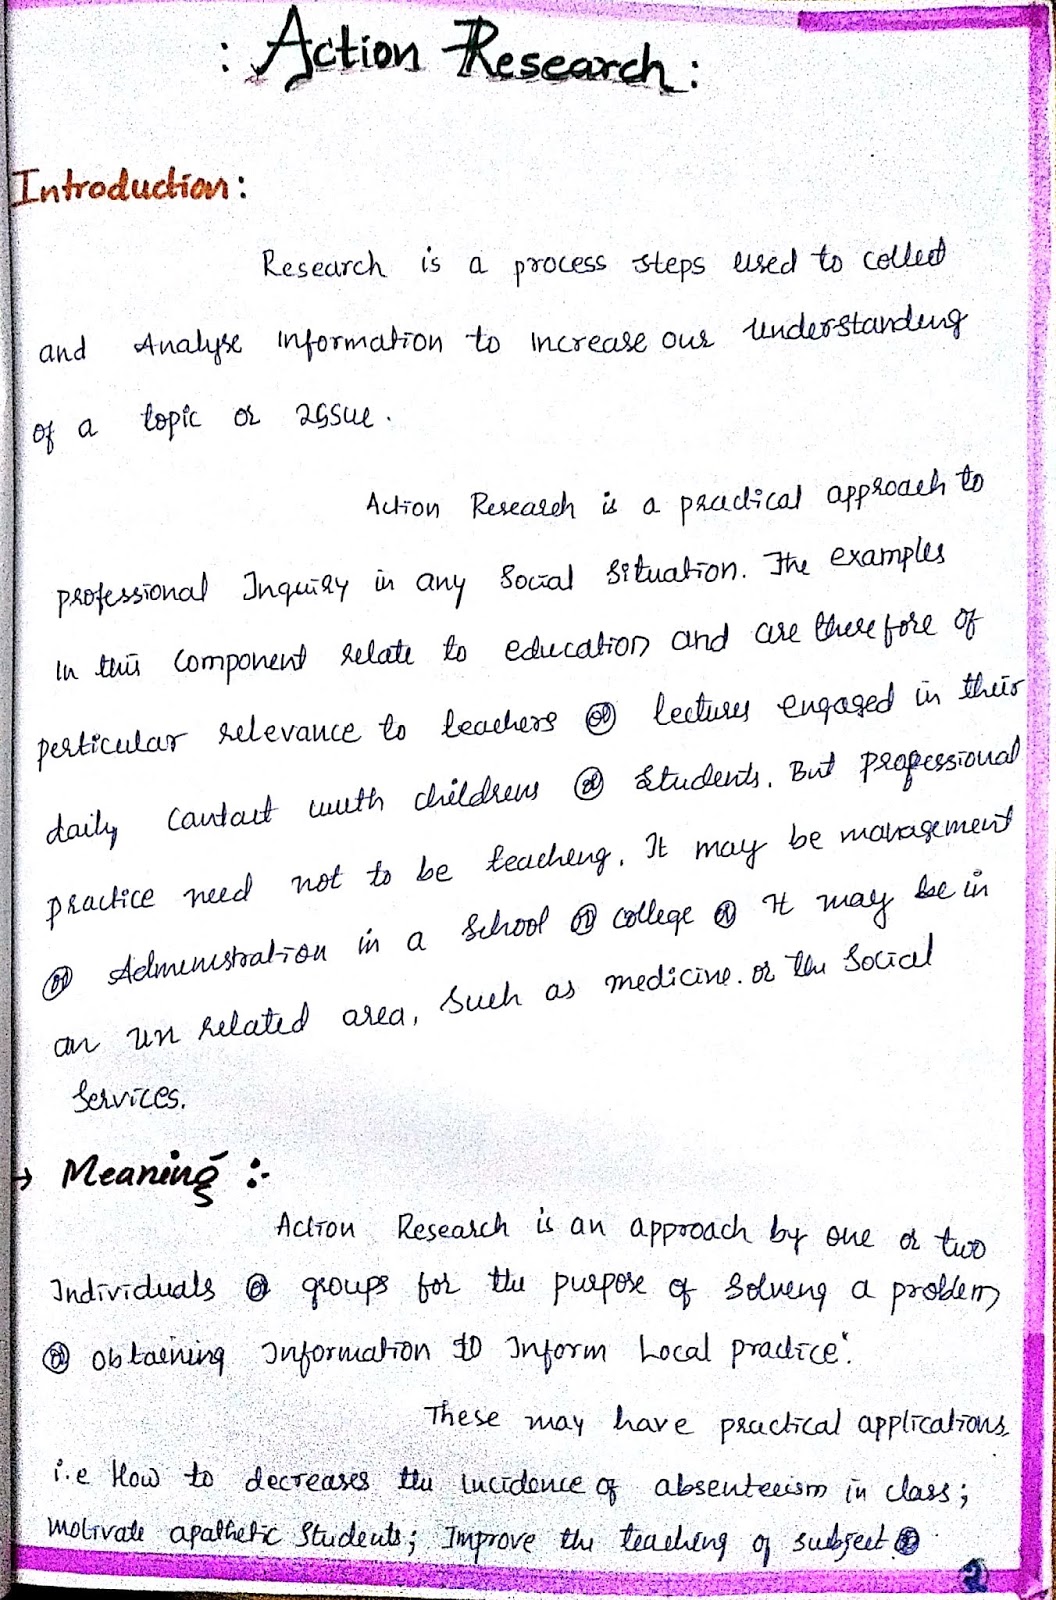 : Action Research :
Introduction :
Research is a process steps used to collect
and Analyse Information to Increase our understanding
of a topic or issue.
Action Research is a practical approach to
professional Inquiry in any Social Situation. The examples
In this component relate to education and are therefore of
perticular relevance to teachers or lectures engaged in their
daily Contact with childrens or Students. But professional
practice need not to be teaching. It may be management
or Administration in a School or College or It may be in
an un related area, Such as medicine. or the Social
Services.
→ Meaning :-
Action Research is an approach by one or two
Individuals or groups for the purpose of Solving a problem
or obtaining Information to Inform Local practice".
These may have practical applications
i.e How to decreases the incidence of absenteeism in class;
motivate apathetic Students; Improve the teaching of subject or
2